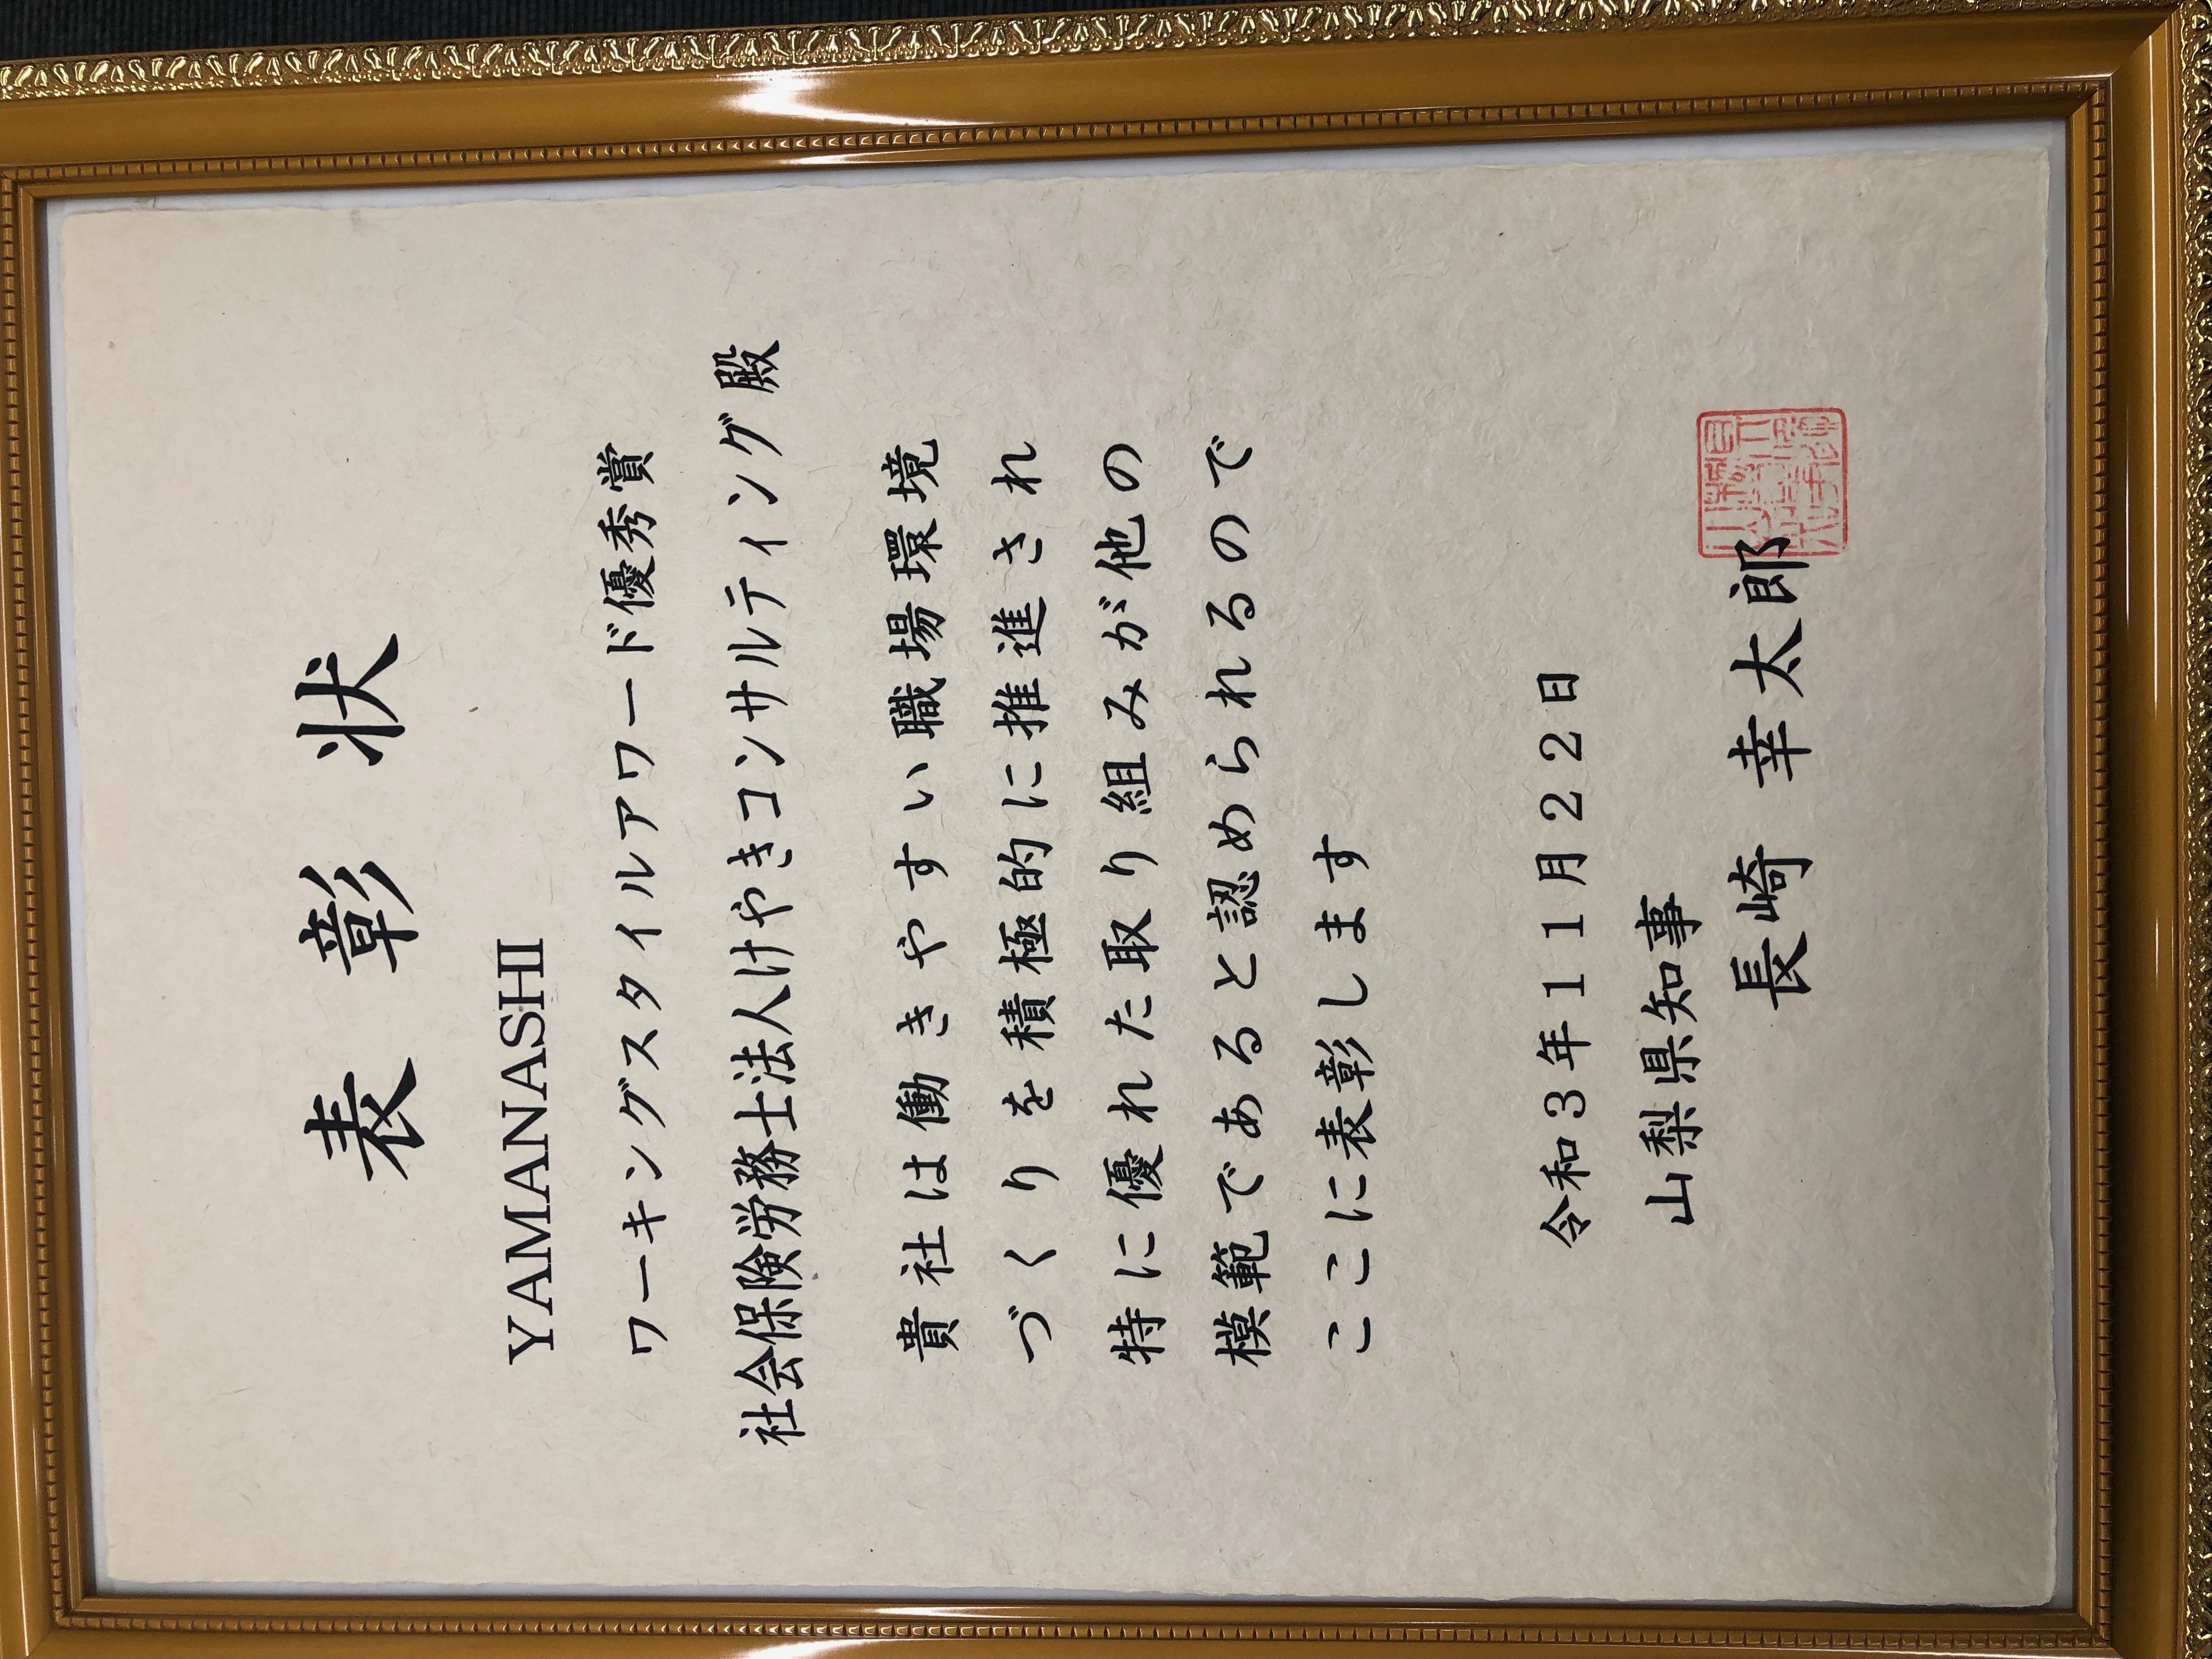 表彰状
YAMANASHI
ワーキングスタイルアワード優秀賞
社会保険労務士法人けやきコンサルティング 殿
貴社は働きやすい職場環境
づくりを積極的に推進され
特に優れた取り組みが他の
模範であると認められるので
ここに表彰します
令和3年11月22日
山梨県知事
長崎 幸太郎